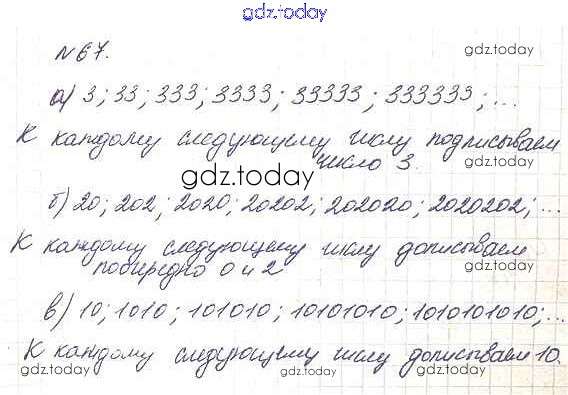 gdz.today
N 67.
gdz.today
а) 3; 33; 333; 3333; 33333; 333333; ...
К каждому следующему числу подписываем
число 3.
gdz.today
gdz.today
б) 20; 202; 2020; 20202; 202020; 2020202; ...
К каждому следующему числу дописываем
побчередно 0 и 2
gdz.today
в) 10; 1010; 101010; 10101010; 1010101010; ...
К каждому следующему числу дописываем 10.
gdz.today gdz.today gdz.today